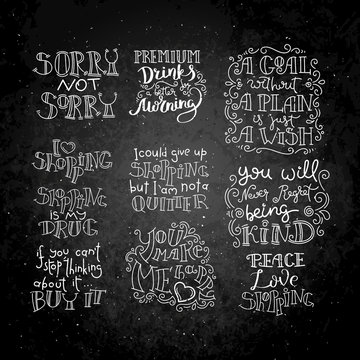 SORRY
NOT
SORRY
I ♡
SHOPPING
SHOPPING
IS MY
DRUG
if you can't
stop thinking
about it...
BUY IT
PREMIUM
Drinks
Morning
I could give up
SHOPPING
but I am not a
QUITTER
YOU
MAKE
ME
A GOAL
without
A PLAN
is just
A WISH
you will
Never Regret
being
KIND
PEACE
Love
SHOPPING